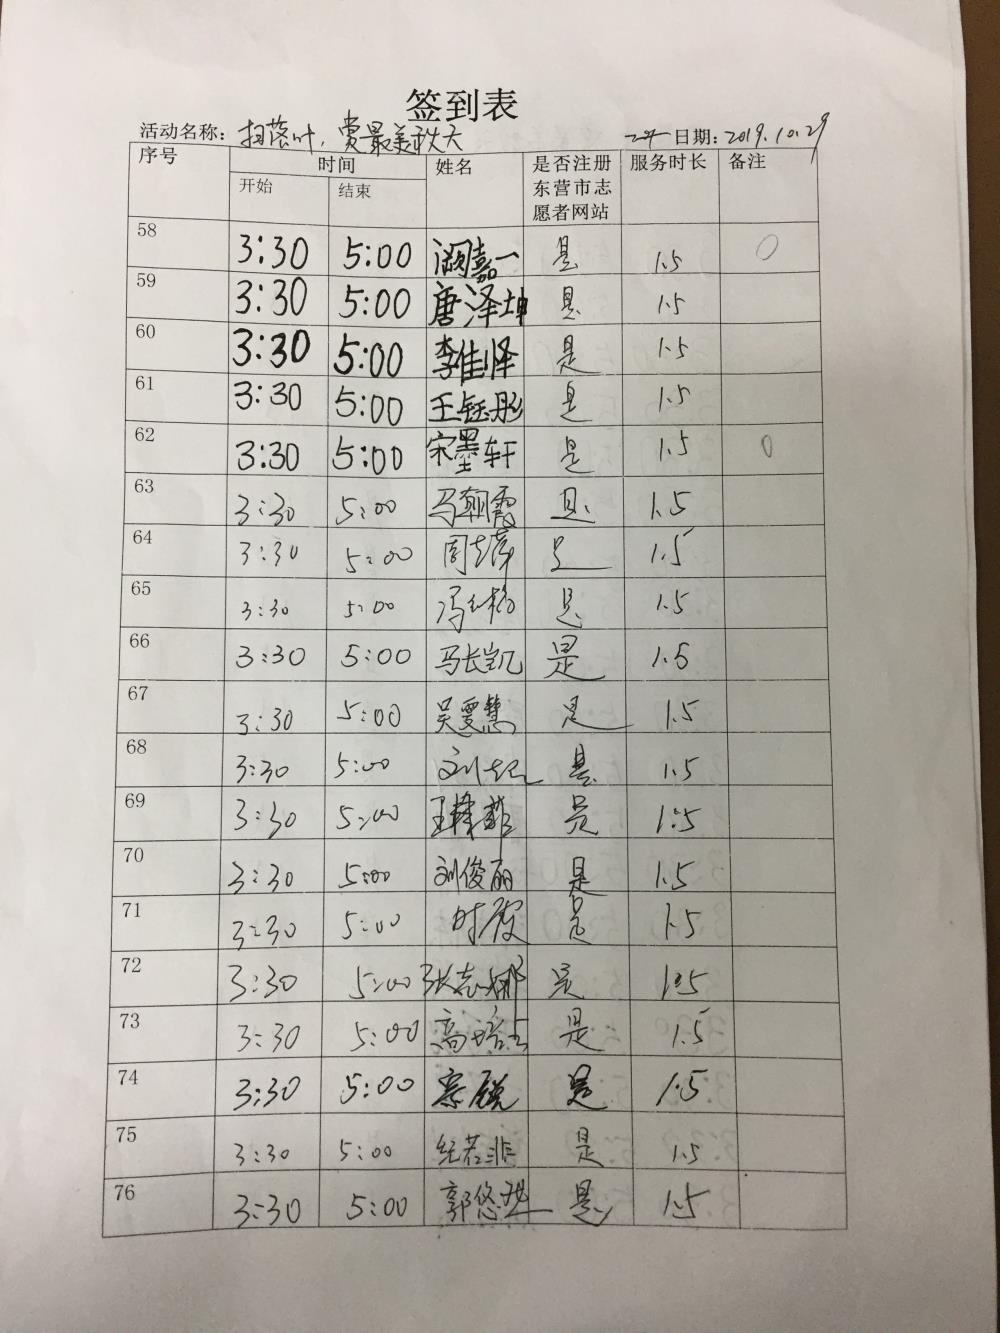 签到表
活动名称：扫落叶，赏最美秋天 日期：2019.10.29
序号 时间 姓名 是否注册东营市志愿者网站 服务时长 备注
开始 结束
58 3:30 5:00 阚嘉一 是 1.5 0
59 3:30 5:00 唐泽坤 是 1.5
60 3:30 5:00 李佳怿 是 1.5
61 3:30 5:00 王钰彤 是 1.5
62 3:30 5:00 宋墨轩 是 1.5 0
63 3:30 5:00 马朝霞 是 1.5
64 3:30 5:00 是 1.5
65 3:30 5:00 是 1.5
66 3:30 5:00 马长凯 是 1.5
67 3:30 5:00 吴雯慧 是 1.5
68 3:30 5:00 是 1.5
69 3:30 5:00 是 1.5
70 3:30 5:00 刘俊丽 是 1.5
71 3:30 5:00 时霞 是 1.5
72 3:30 5:00 张志娜 是 1.5
73 3:30 5:00 是 1.5
74 3:30 5:00 是 1.5
75 3:30 5:00 纪若非 是 1.5
76 3:30 5:00 是 1.5